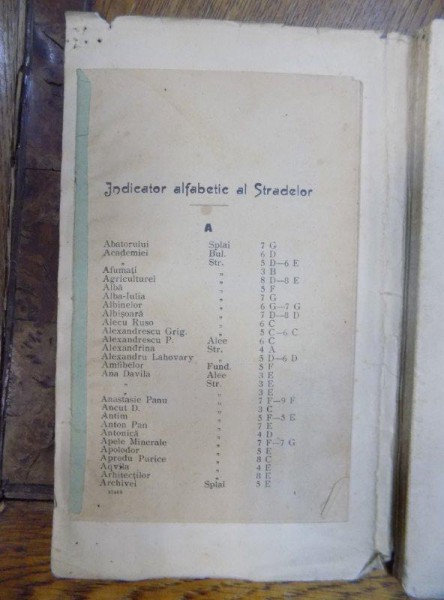 Indicator alfabetic al Stradelor
A
Abatorului Splai 7 G
Academiei Bul. 6 D
„ Str. 5 D—6 E
Afumați „ 3 B
Agriculturei „ 8 D—8 E
Albă „ 5 F
Alba-Iulia „ 7 G
Albinelor „ 6 G—7 G
Albișoară „ 7 D—8 D
Alecu Ruso „ 6 C
Alexandrescu Grig. „ 5 C—6 C
Alexandrescu P. Alee 6 C
Alexandrina Str. 4 A
Alexandru Lahovary „ 5 D—6 D
Amfibelor Fund. 5 F
Ana Davila Alee 3 E
„ Str. 3 E
„ „ 3 E
Anastasie Panu „ 7 F—9 F
Ancuț D. „ 3 C
Antim „ 5 F—5 E
Anton Pan „ 7 E
Antonică „ 4 D
Apele Minerale „ 7 F—7 G
Apolodor „ 5 E
Aprodu Purice „ 8 C
Aqvila „ 4 E
Arhitecților „ 8 E
Archivei Splai 5 E